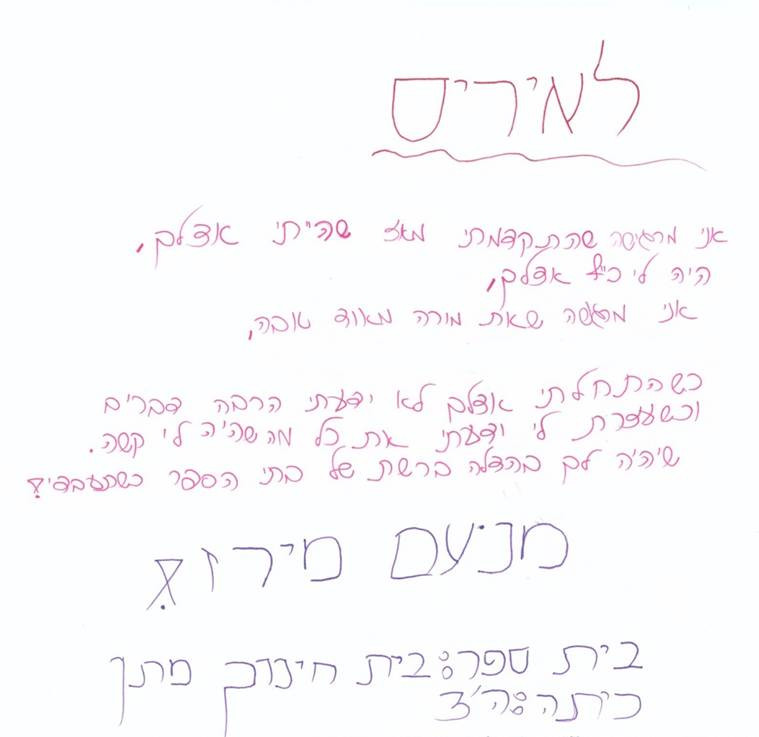 לאיריס
אני מרגישה שהתקדמתי מאז שהייתי אצלך,
היה לי כיף אצלך,
אני מרגישה שאת מורה מאוד טובה,
כשהתחלתי אצלך לא ידעתי הרבה דברים
וכשעזרת לי ידעתי את כל מה שהיה לי קשה.
שיהיה לך בהצלחה ברשת של בתי הספר כשתעבדי!
מנעם מירז!
בית ספר: בית חינוך מתן
כיתה: ה'3